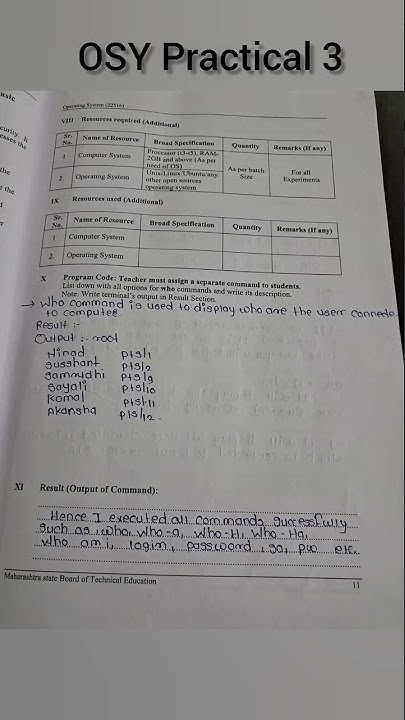 OSY Practical 3
asic
Operating System (22516)
VIII Resources required (Additional)
Sr. No. Name of Resource Broad Specification Quantity Remarks (If any)
1. Computer System Processor (i3-i5), RAM-2GB and above (As per need of OS) As per batch Size For all Experiments
2. Operating System Unix/Linux/Ubuntu/any other open sources operating system
IX Resources used (Additional)
Sr. No. Name of Resource Broad Specification Quantity Remarks (If any)
1. Computer System
2. Operating System
X Program Code: Teacher must assign a separate command to students.
List down with all options for who commands and write its description.
Note: Write terminal's output in Result Section.
→ Who command is used to display who are the user connecte
to computer.
Result :-
Output :- root
Ninad pts/1
Susshant pts/2
Sammydhi pts/9
Sayali pts/10
Komal pts/11
Akansha pts/12.
XI Result (Output of Command):
Hence I executed all commands successfully
such as, who, who-a, who-H, Who-Ha,
who am i, login, password, so, pw etc.
Maharashtra state Board of Technical Education
11